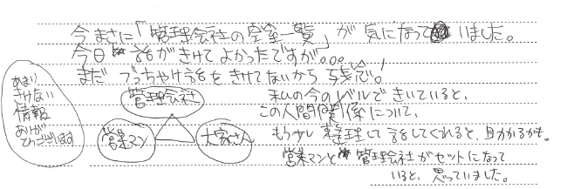 今まさに「管理会社の空室一覧」が気になっていました。
今日話がきけてよかったですが。。。
まだぶっちゃけ話をきけてないから残念！
あまり
きけない
情報
ありが
とうございます
管理会社
営業マン
大家さん
私の今のレベルできいていると、
この人間関係について、
もう少し整理して話をしてくれると、助かるかも。
営業マンと管理会社がセットになって
いると、思っていました。